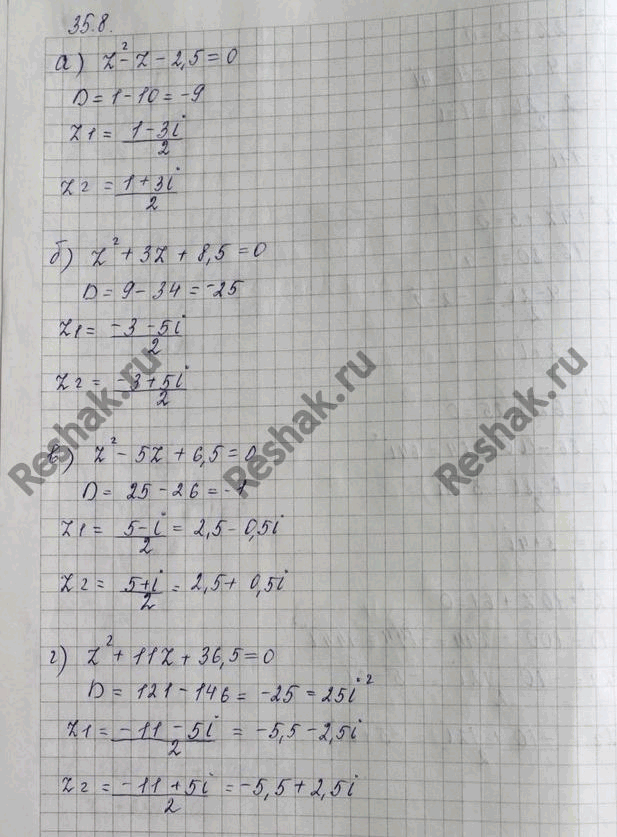 35.8.
а) z² - z - 2,5 = 0
D = 1 - 10 = -9
z1 = (1 - 3i)/2
z2 = (1 + 3i)/2
б) z² + 3z + 8,5 = 0
D = 9 - 34 = -25
z1 = (-3 - 5i)/2
z2 = (-3 + 5i)/2
в) z² - 5z + 6,5 = 0
D = 25 - 26 = -1
z1 = (5 - i)/2 = 2,5 - 0,5i
z2 = (5 + i)/2 = 2,5 + 0,5i
г) z² + 11z + 36,5 = 0
D = 121 - 146 = -25 = 25i²
z1 = (-11 - 5i)/2 = -5,5 - 2,5i
z2 = (-11 + 5i)/2 = -5,5 + 2,5i
Reshak.ru
Reshak.ru
Reshak.ru